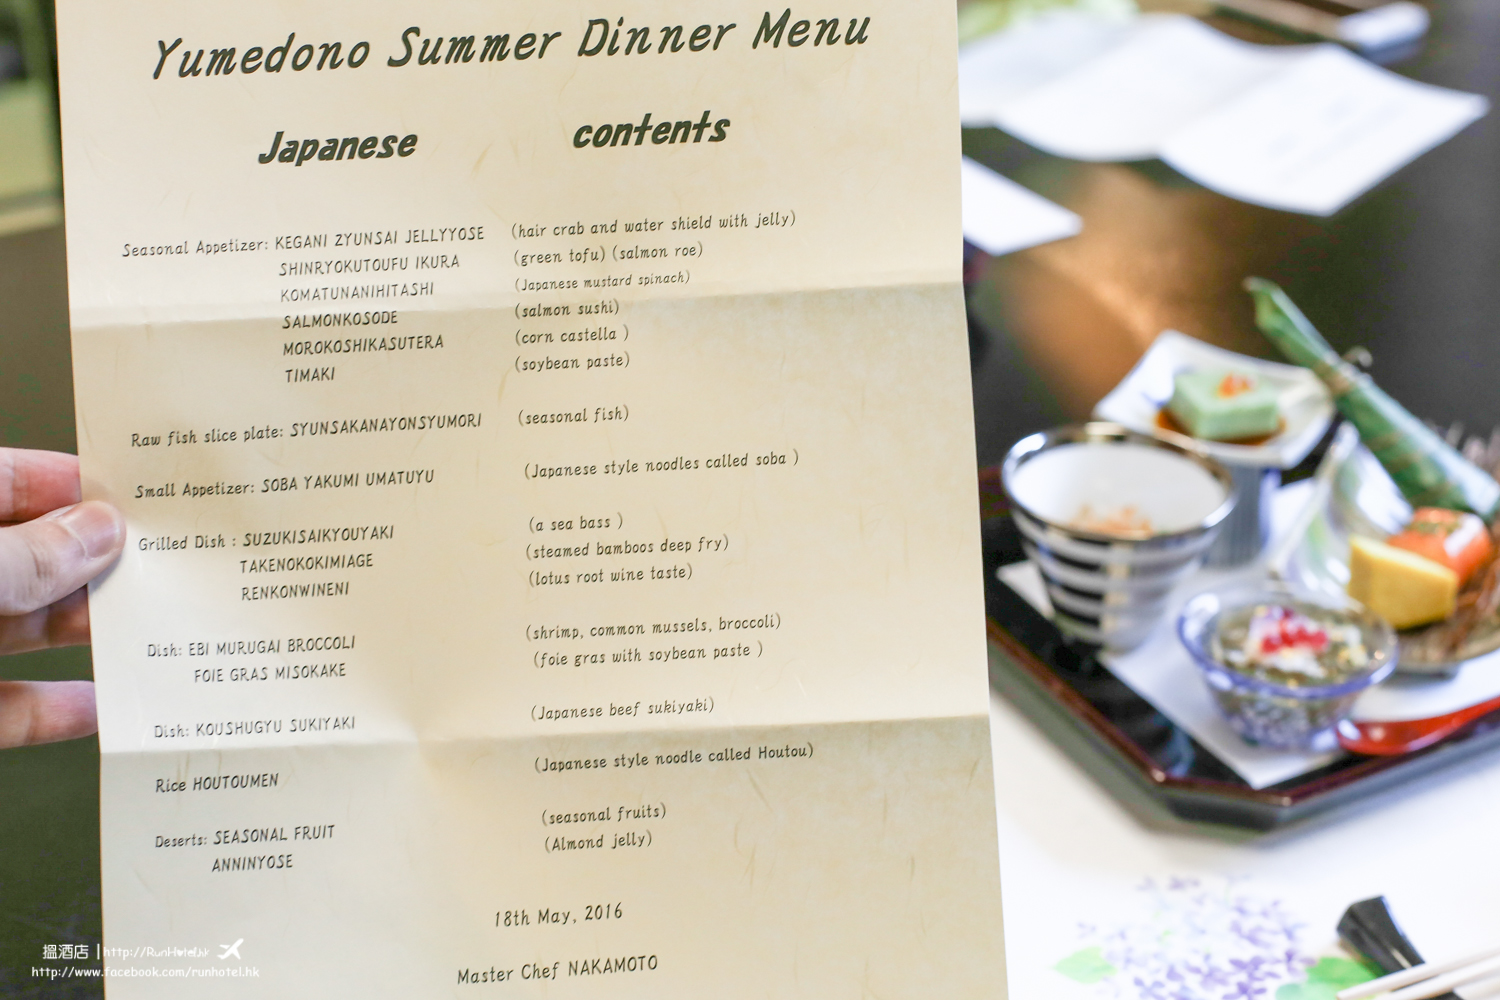 Yumedono Summer Dinner Menu
Japanese contents
Seasonal Appetizer: KEGANI ZYUNSAI JELLYYOSE (hair crab and water shield with jelly)
SHINRYOKUTOUFU IKURA (green tofu) (salmon roe)
KOMATUNANIHITASHI (Japanese mustard spinach)
SALMONKOSODE (salmon sushi)
MOROKOSHIKASUTERA (corn castella )
TIMAKI (soybean paste)
Raw fish slice plate: SYUNSAKANAYONSYUMORI (seasonal fish)
Small Appetizer: SOBA YAKUMI UMATUYU (Japanese style noodles called soba )
Grilled Dish : SUZUKISAIKYOUYAKI (a sea bass )
TAKENOKOKIMIAGE (steamed bamboos deep fry)
RENKONWINENI (lotus root wine taste)
Dish: EBI MURUGAI BROCCOLI (shrimp, common mussels, broccoli)
FOIE GRAS MISOKAKE (foie gras with soybean paste )
Dish: KOUSHUGYU SUKIYAKI (Japanese beef sukiyaki)
Rice HOUTOUMEN (Japanese style noodle called Houtou)
Deserts: SEASONAL FRUIT (seasonal fruits)
ANNINYOSE (Almond jelly)
18th May, 2016
Master Chef NAKAMOTO
搵酒店 | http://RunHotel.hk
http://www.facebook.com/runhotel.hk